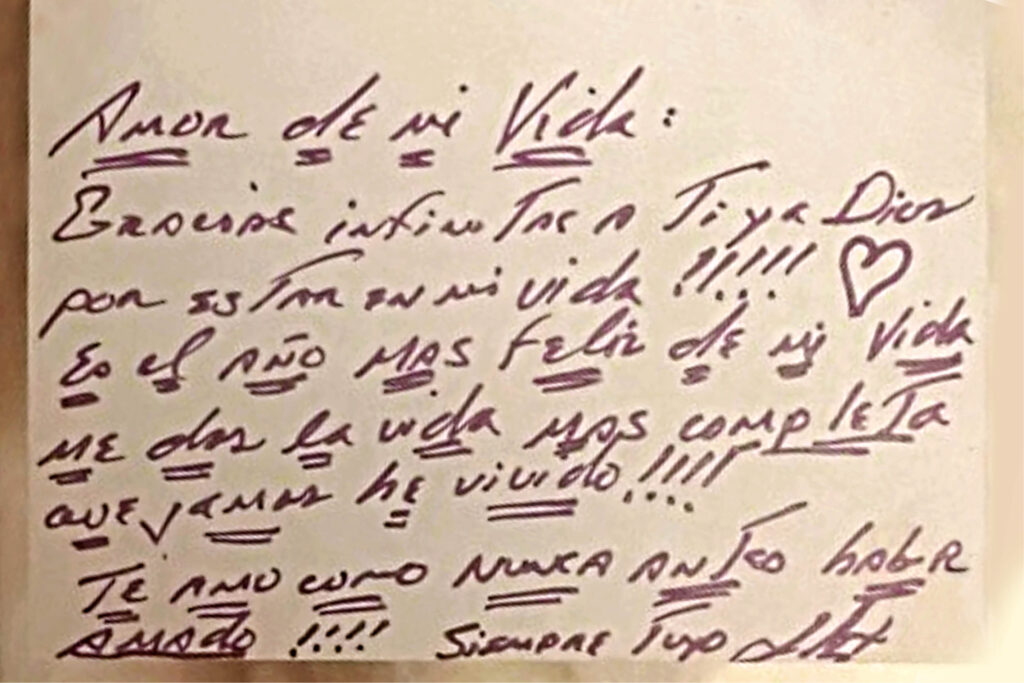 Amor de mi Vida:
Gracias infinitas a Ti y a Dios
por estar en mi vida !!!!!
Es el AÑO MAS feliz de mi Vida
me das la vida mas completa
que jamas he vivido!!!!
Te amo como nunca antes haber
amado !!!! Siempre Tuyo